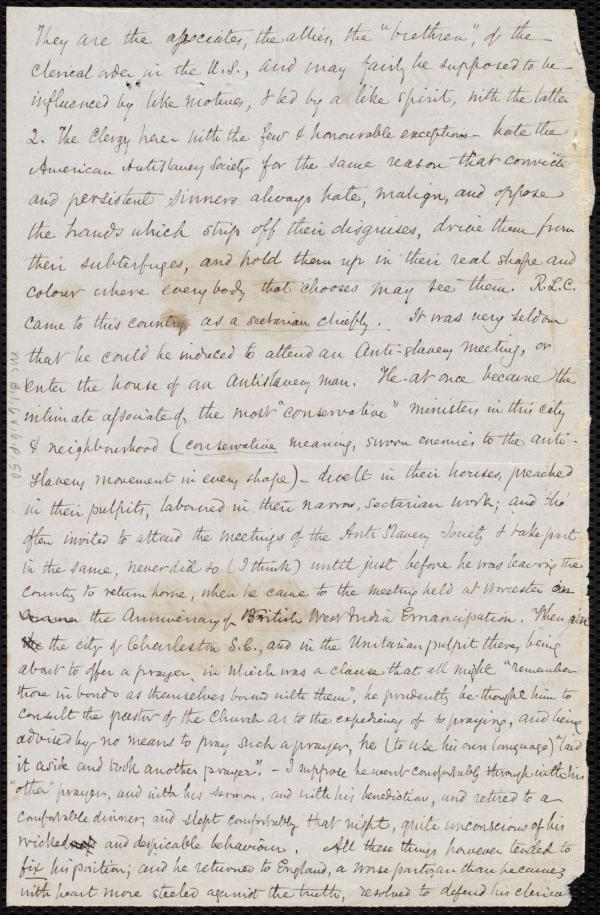 They are the associates, the allies, the "brethren", of the
clerical order in the U.S., and may fairly be supposed to be
influenced by like motives, & led by a like spirit, with the latter
2. The Clergy here - with the few & honourable exceptions - hate the
American AntiSlavery Society for the same reason that convicted
and persistent sinners always hate, malign, and oppose
the hands which strip off their disguises, drive them from
their subterfuges, and hold them up in their real shape and
colour where every body that chooses may see them. R.L.C.
came to this country as a sectarian chiefly. It was very seldom
that he could be induced to attend an Anti-slavery meeting, or
enter the house of an Antislavery man. He at once became the
intimate associate of the most "conservative" ministers in this city
& neighbourhood (conservative meaning, sworn enemies to the anti-
slavery movement in every shape) - dwelt in their houses, preached
in their pulpits, laboured in their narrow, sectarian work; and tho'
often invited to attend the meetings of the Anti Slavery Society & take part
in the same, never did so (I think) until just before he was leaving the
country to return home, when he came to the meeting held at Worcester on
the Anniversary of British West India Emancipation. Then, in
the city of Charleston S.C., and in the Unitarian pulpit there, being
about to offer a prayer, in which was a clause that all might "remember
those in bonds as themselves bound with them", he prudently be-thought him to
consult the pastor of the Church as to the expediency of so praying, and being
advised by no means to pray such a prayer, he (to use his own language) "laid
it aside and took another prayer". - I suppose he went comfortably through with his
"other" prayer, and with his sermon, and with his benediction, and retired to a
comfortable dinner, and slept comfortably that night, quite unconscious of his
wicked and despicable behaviour. All these things however tended to
fix his position; and he returned to England, a worse partizan than he came,
with heart more steeled against the truth, resolved to defend his clerical